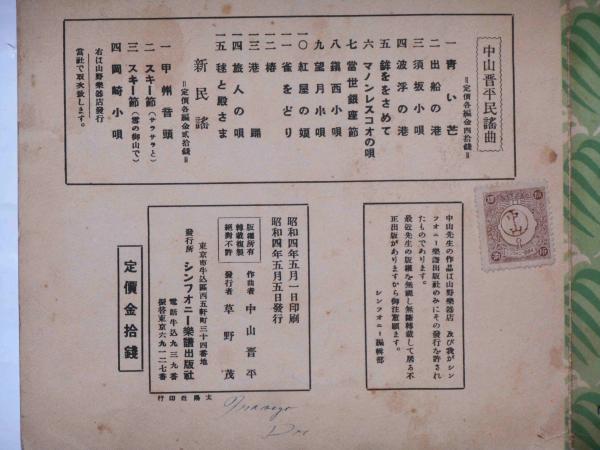 中山晋平民謠曲
＝定價各編金四拾錢＝
一 青い芒
二 出船の港
三 須坂小唄
四 波浮の港
五 鉾ををさめて
六 マノンレスコオの唄
七 當世銀座節
八 鎭西小唄
九 望月小唄
一〇 紅屋の娘
一一 雀をどり
一二 椿
一三 港踊
一四 旅人の唄
一五 毬と殿さま
新民謠
＝定價各編金貳拾錢＝
一 甲州音頭
二 スキー節（サラサラと）
三 スキー節（雪の御山で）
四 岡崎小唄
右は山野樂器店發行
當社で取次致します。
中山先生の作品は山野樂器店 及び我がシン
フオニー樂譜出版社のみにその發行を許され
たものであります。
最近先生の版權を無視し無斷轉載して居る不
正出版がありますから御注意願ます。
シンフオニー編輯部
中山
昭和四年五月一日印刷
昭和四年五月五日發行
版權所有
轉載複製
絕對不許
作曲者 中山晋平
發行者 草野茂
東京市牛込區西五軒町三十四番地
發行所 シンフオニー樂譜出版社
電話牛込九三九番
振替東京六九一二七番
太陽社印行
定價金拾錢